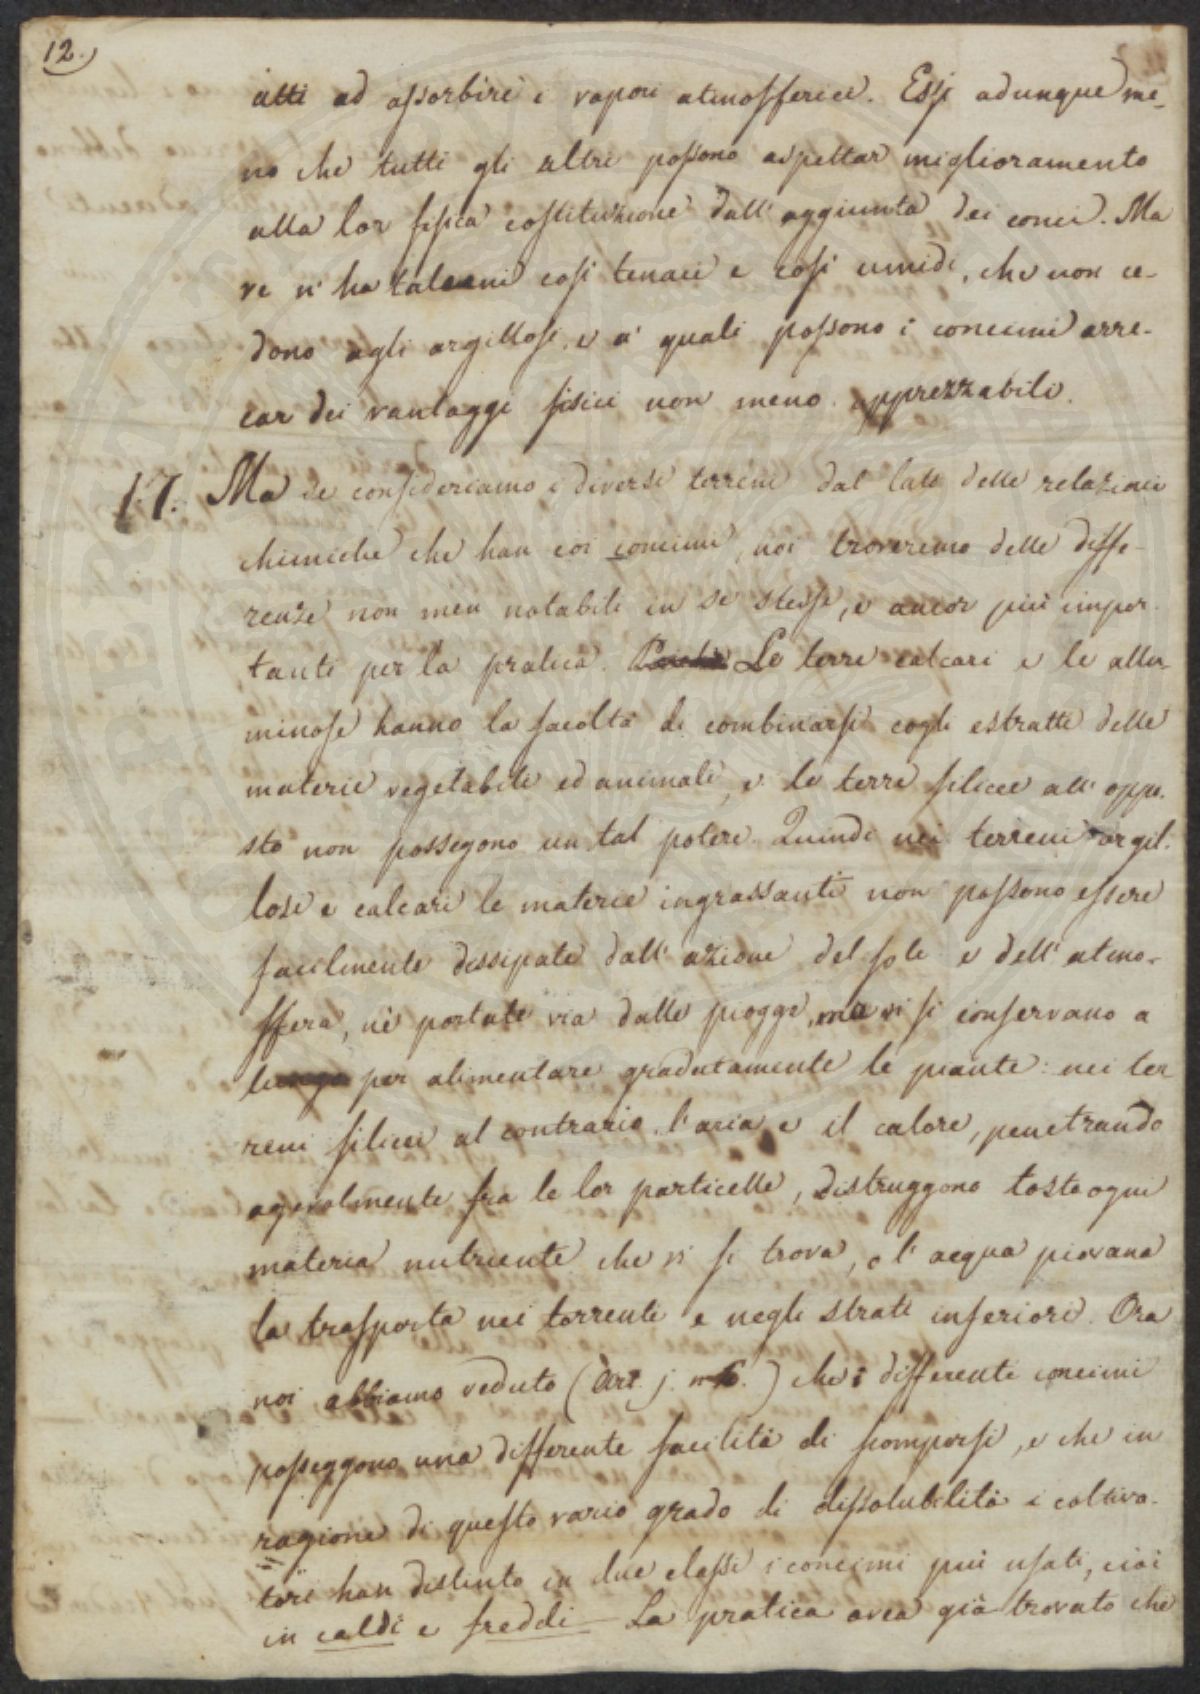 12.
atti ad assorbire i vapori atmosferici. Essi adunque me-
no che tutti gli altri possono aspettar miglioramento
alla lor fisica costituzione dall'aggiunta dei conci. Ma
ve n'ha taluni così tenaci e così umidi, che non ce-
dono agli argillosi, e a' quali possono i concimi arre-
car dei vantaggi fisici non meno apprezzabili.
17. Ma se consideriamo i diversi terreni dal lato delle relazioni
chimiche che han coi concimi, noi troveremo delle diffe-
renze non men notabili in se stesse, e ancor più impor-
tanti per la pratica. Le terre calcari e le allu-
minose hanno la facoltà di combinarsi cogli estratti delle
materie vegetabili ed animali, e le terre silicee all'oppo-
sto non possegono un tal potere. Quindi nei terreni argil-
losi e calcari le materie ingrassanti non possono essere
facilmente dissipate dall'azione del sole e dell'atmo-
sfera, nè portate via dalle piogge, ma vi si conservano a
lungo per alimentare gradatamente le piante: nei ter
reni silicei al contrario l'aria e il calore, penetrando
agevolmente fra le lor particelle, distruggono tosto ogni
materia nutriente che vi si trova, e l'acqua piovana
la trasporta nei torrenti e negli strati inferiori. Ora
noi abbiamo veduto (Art. j. n. 6.) che i differenti concimi
posseggono una differente facilità di scomporsi, e che in
ragione di questo vario grado di dissolubilità i coltiva-
tori han distinto in due classi i concimi più usati, cioè
in caldi e freddi — La pratica avea già trovato che